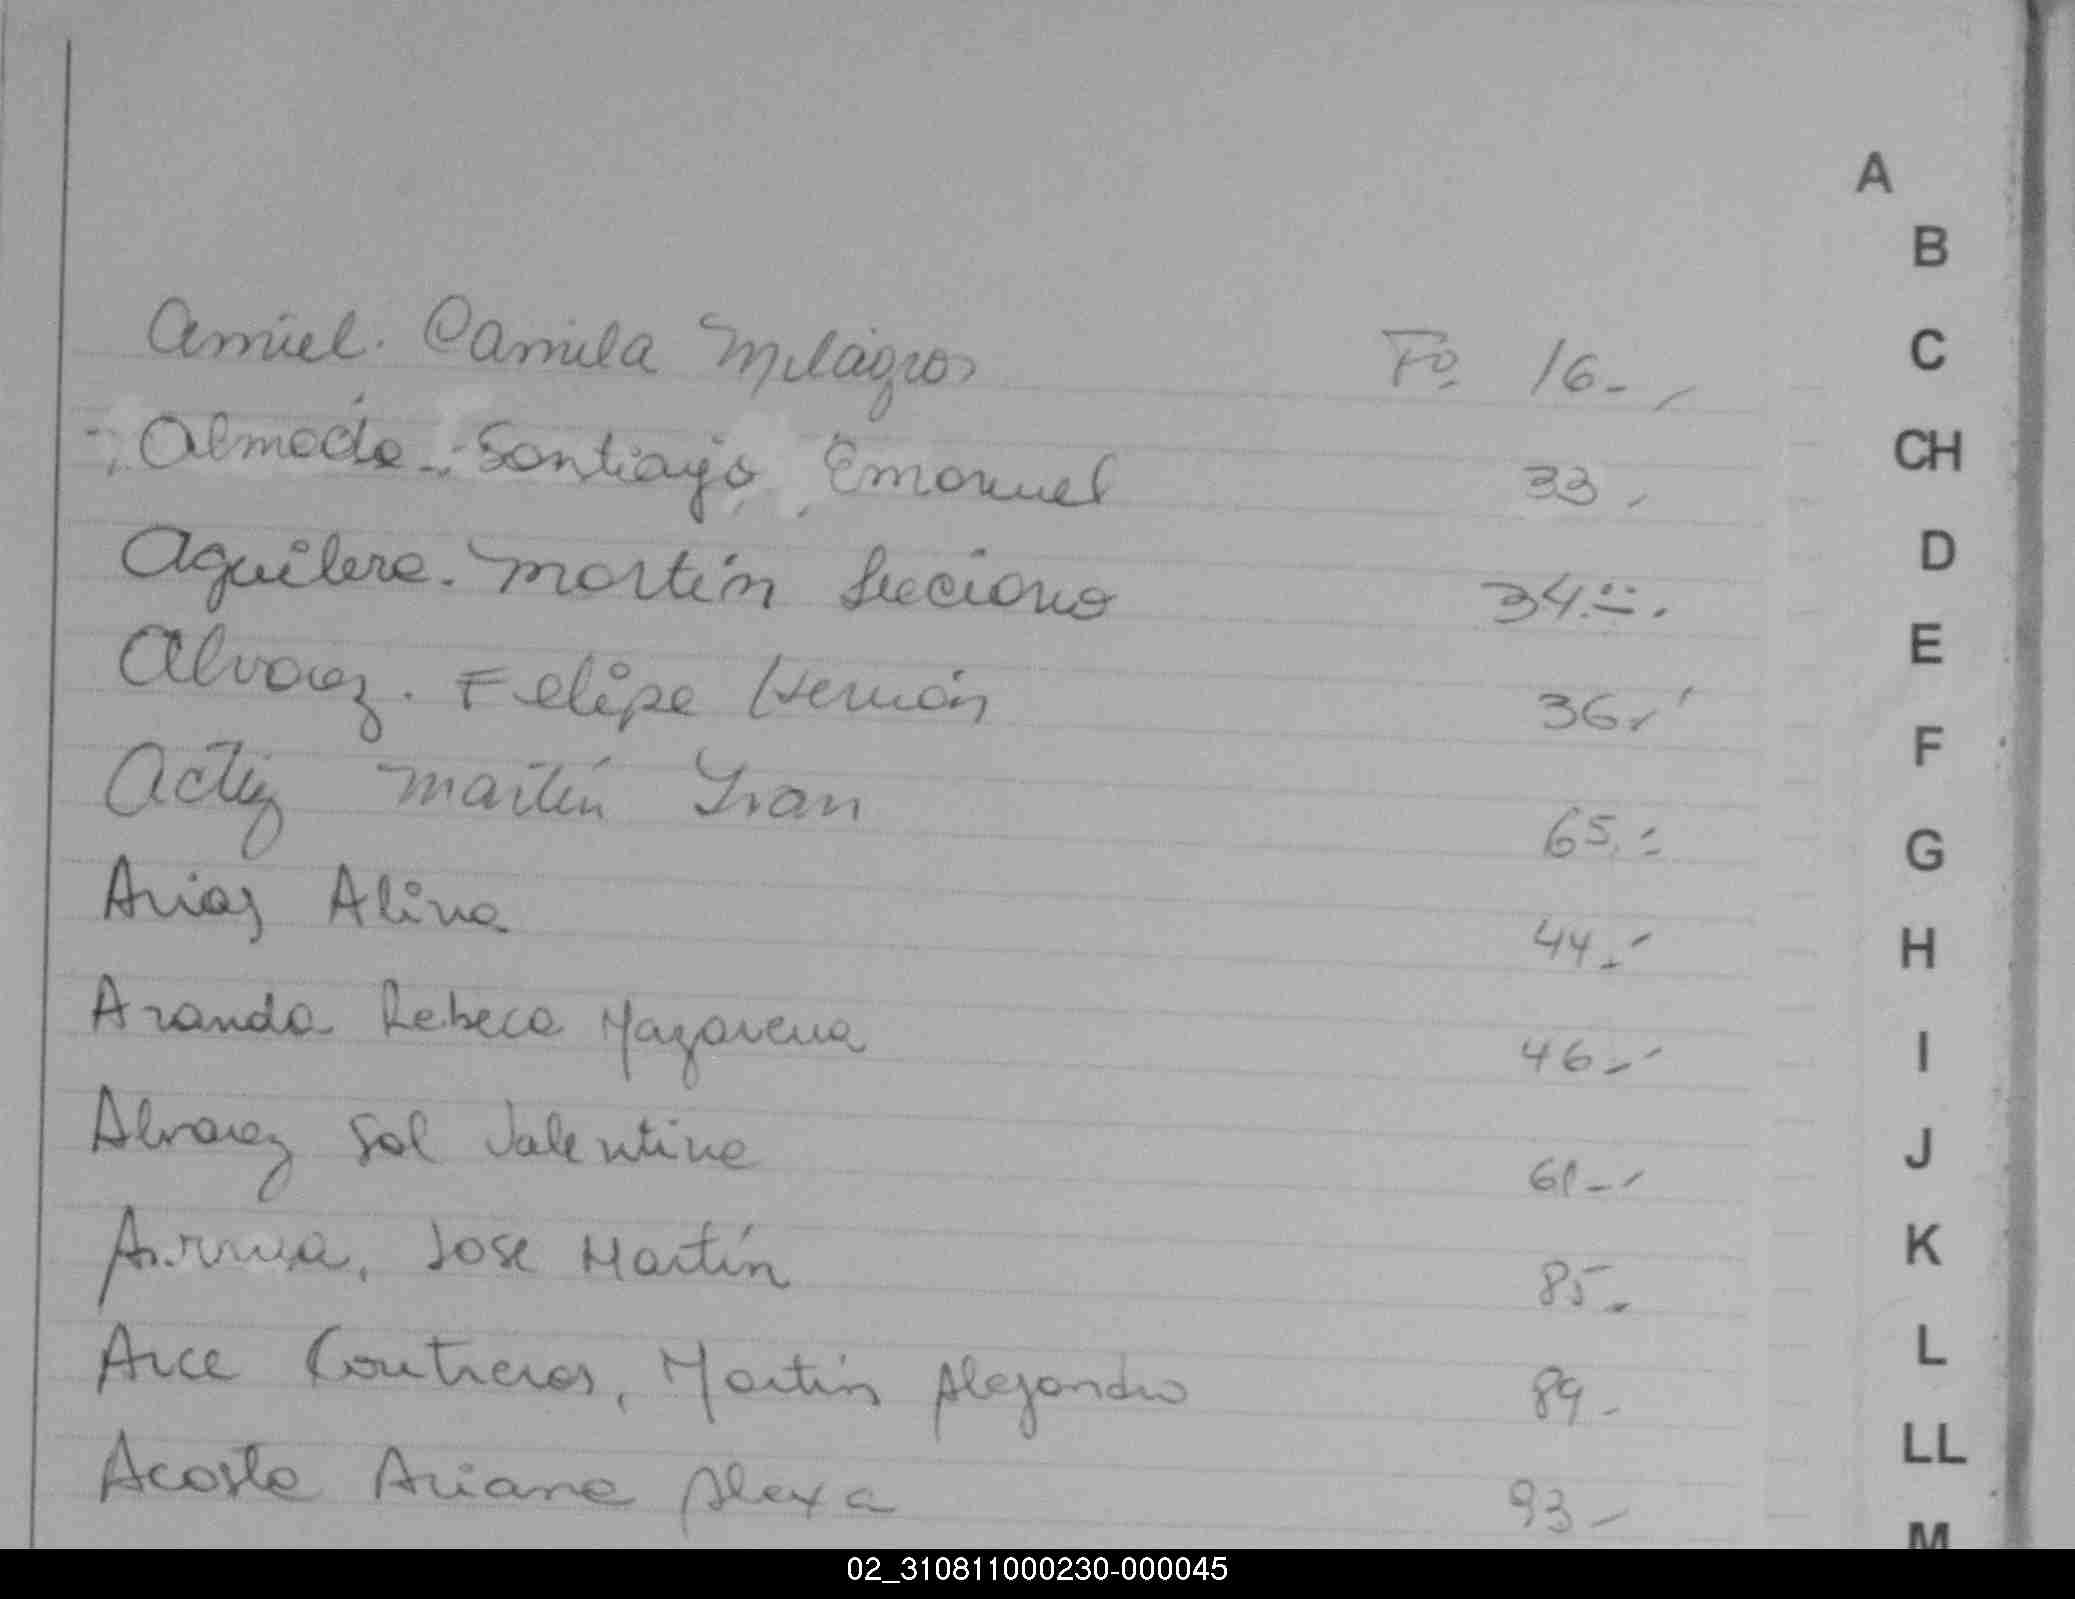 A
B
Amiel. Camila Milagros Fo. 16.-
C
Almada.- Santiago Emanuel 33.
CH
Aguilera. Martín Luciano 34.-
D
Alvarez. Felipe Hernán 36.-
E
F
Actiz Martín Ivan 65.-
G
Arias Alina 44.-
H
Aranda Rebeca Nazarena 46.-
I
Alvarez Sol Valentina 61.-
J
Arrua, Jose Martín 85.-
K
Arce Contreras, Martín Alejandro 89.-
L
LL
Acosta Ariana Alexa 93.-
M
02_310811000230-000045